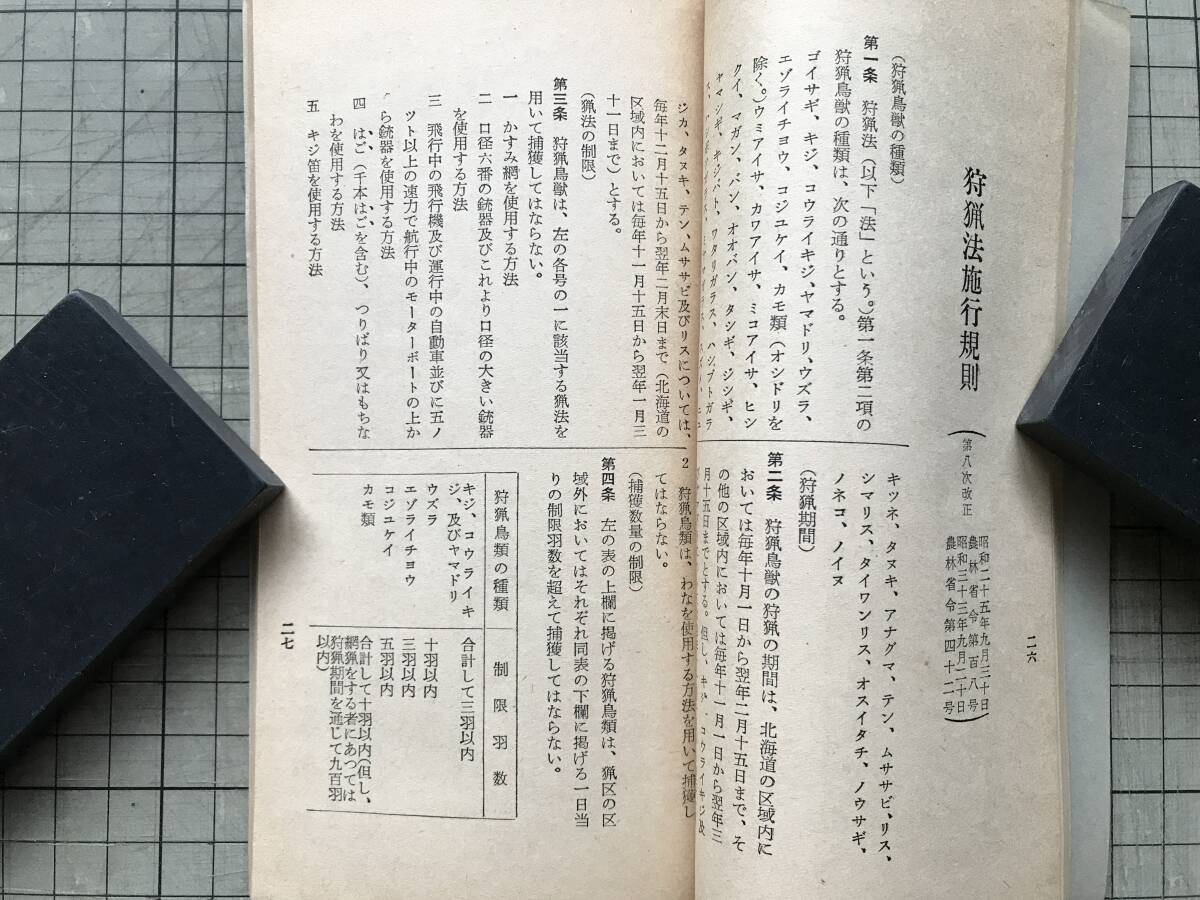 二六
狩猟法施行規則
(第八次改正
昭和二十五年九月三十日
農林省令第百八号
昭和三十三年九月二十日
農林省令第四十二号)
(狩猟鳥獣の種類)
第一条 狩猟法(以下「法」という。)第一条第二項の
狩猟鳥獣の種類は、次の通りとする。
ゴイサギ、キジ、コウライキジ、ヤマドリ、ウズラ、
エゾライチヨウ、コジユケイ、カモ類(オシドリを
除く。)ウミアイサ、カワアイサ、ミコアイサ、ヒシ
クイ、マガン、バン、オオバン、タシギ、ジシギ、
ヤマシギ、キジバト、ワタリガラス、ハシブトガラ
キツネ、タヌキ、アナグマ、テン、ムササビ、リス、
シマリス、タイワンリス、オスイタチ、ノウサギ、
ノネコ、ノイヌ
(狩猟期間)
第二条 狩猟鳥獣の狩猟の期間は、北海道の区域内に
おいては毎年十月一日から翌年二月十五日まで、そ
の他の区域内においては毎年十一月一日から翌年三
月十五日までとする。但し、キジ、コウライキジ及
ジカ、タヌキ、テン、ムササビ及びリスについては、
毎年十二月十五日から翌年二月末日まで(北海道の
区域内においては毎年十一月十五日から翌年一月三
十一日まで)とする。
(猟法の制限)
第三条 狩猟鳥獣は、左の各号の一に該当する猟法を
用いて捕獲してはならない。
一 かすみ網を使用する方法
二 口径六番の銃器及びこれより口径の大きい銃器
を使用する方法
三 飛行中の飛行機及び運行中の自動車並びに五ノ
ツト以上の速力で航行中のモーターボートの上か
ら銃器を使用する方法
四 はご(千本はごを含む)、つりばり又はもちな
わを使用する方法
五 キジ笛を使用する方法
2 狩猟鳥類は、わなを使用する方法を用いて捕獲し
てはならない。
(捕獲数量の制限)
第四条 左の表の上欄に掲げる狩猟鳥類は、猟区の区
域外においてはそれぞれ同表の下欄に掲げる一日当
りの制限羽数を超えて捕獲してはならない。
狩猟鳥類の種類
制限羽数
キジ、コウライキ
ジ、及びヤマドリ
合計して三羽以内
ウズラ
十羽以内
エゾライチヨウ
三羽以内
コジユケイ
五羽以内
カモ類
合計して十羽以内(但し、
網猟をする者にあつては
狩猟期間を通じて九百羽
以内)
二七